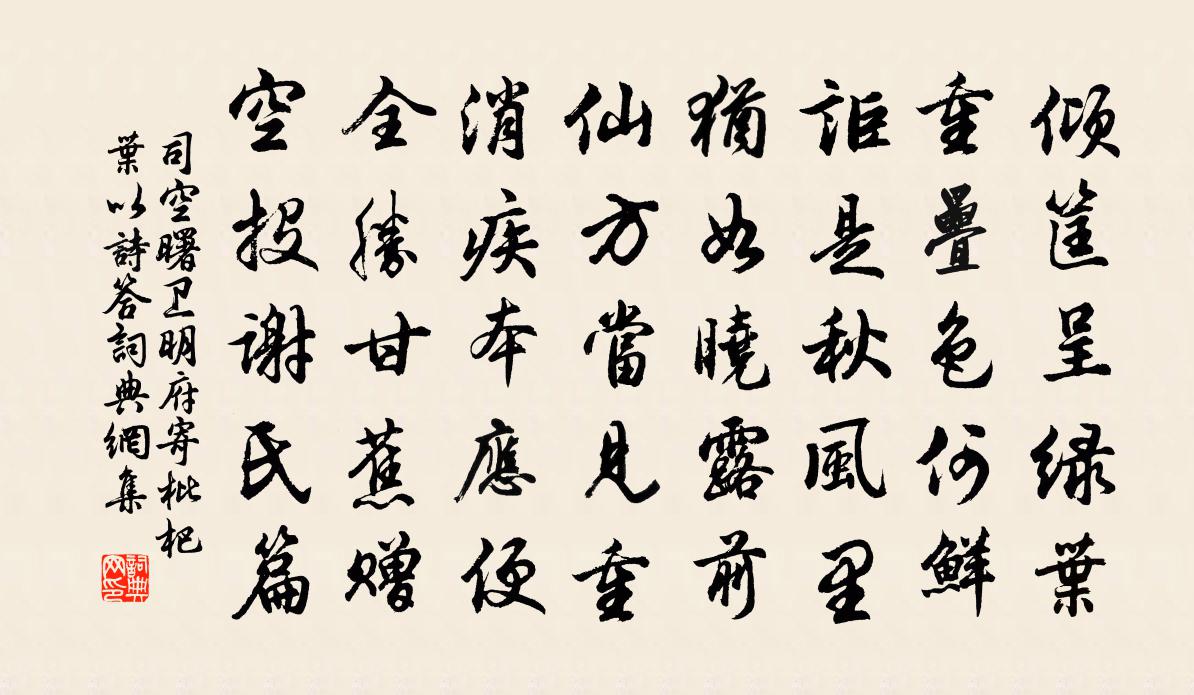 傾筐呈綠葉
重疊色何鮮
詎是秋風里
猶如曉露前
仙方當見重
消疾本應便
全勝甘蕉贈
空投謝氏篇
司空曙卫明府寄枇杷
葉以詩答詞典網集
詞典网印